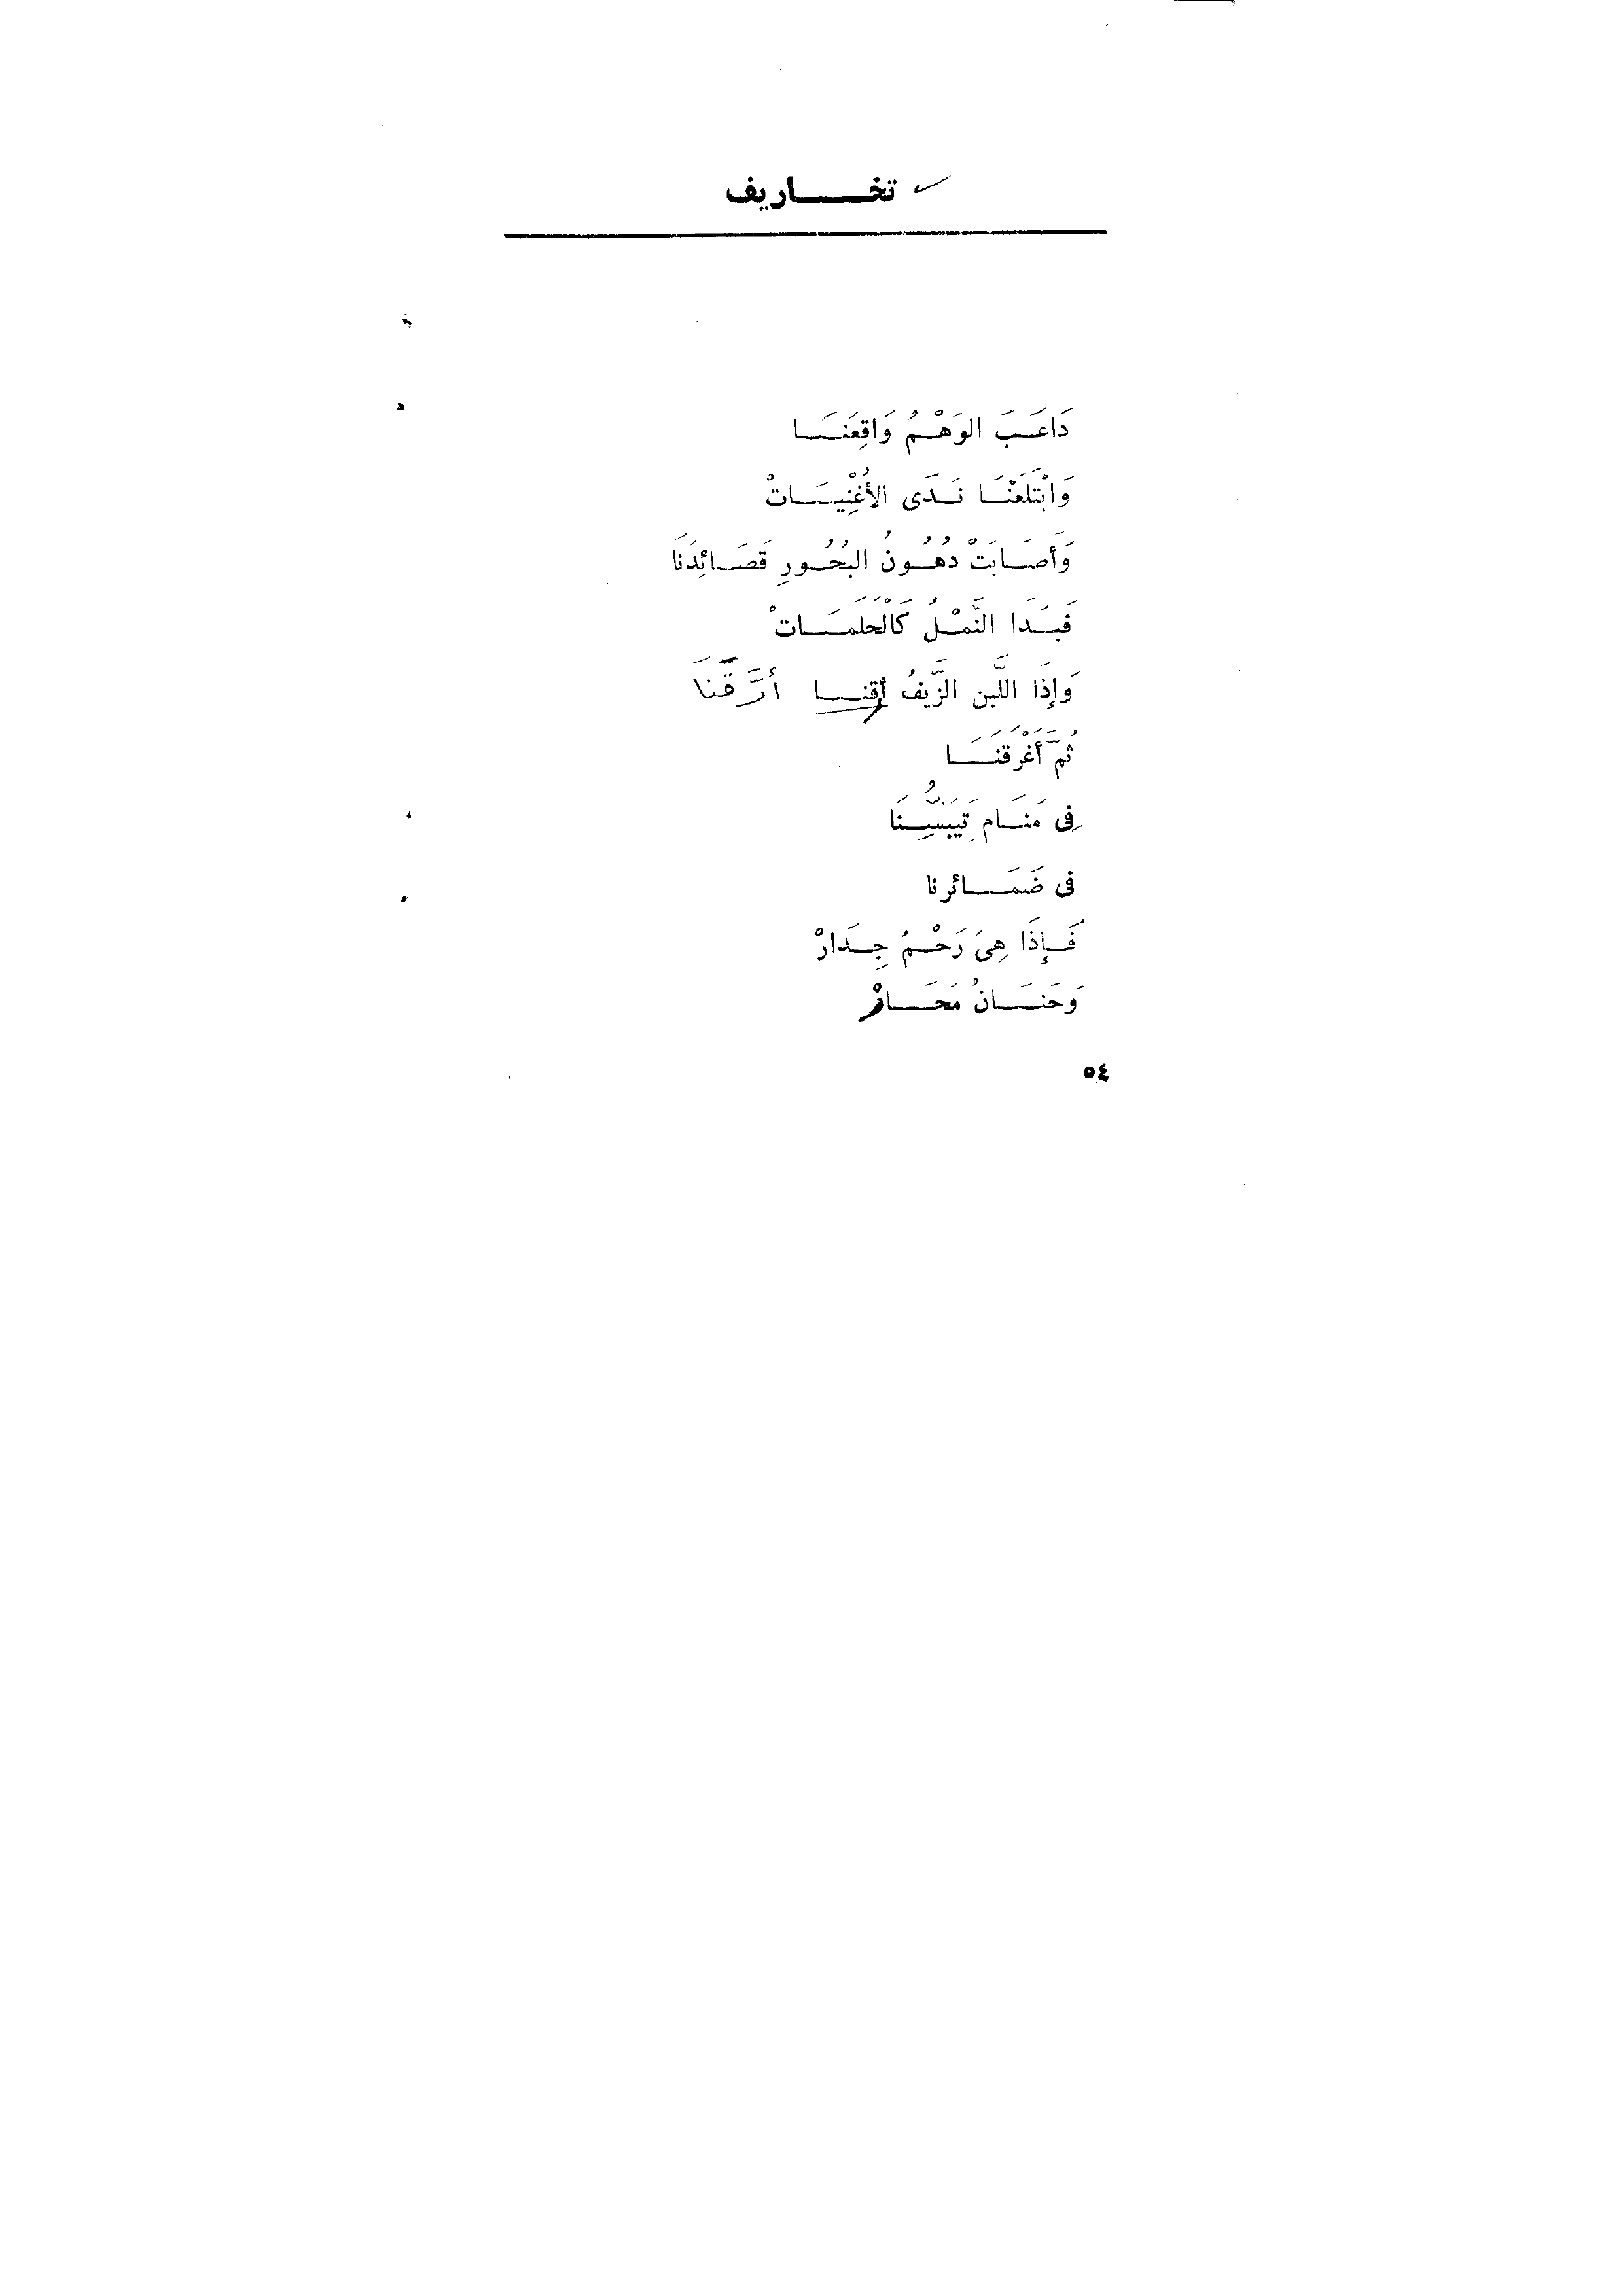 تخاريف
دَاعَبَ الوَهْمُ وَاقِعَنَا
وَابْتَلَعَنَا نَدَى الأُغْنِيَاتْ
وَأَصَابَتْ دُهُونُ البُحُورِ قَصَائِدَنَا
فَبَدَا النَّمْلُ كَالْحَلَمَاتْ
وَإِذَا اللَّبن الزَّيفُ أرقنا أرَّقَنَا
ثُمَّ أَغْرَقَنَا
فِى مَنَامِ تَيَبُّسِنَا
فى ضَمَائرنا
فَإِذَا هِىَ رَحْمُ جِدَارْ
وَحَنَانُ مَحَارْ
٥٤